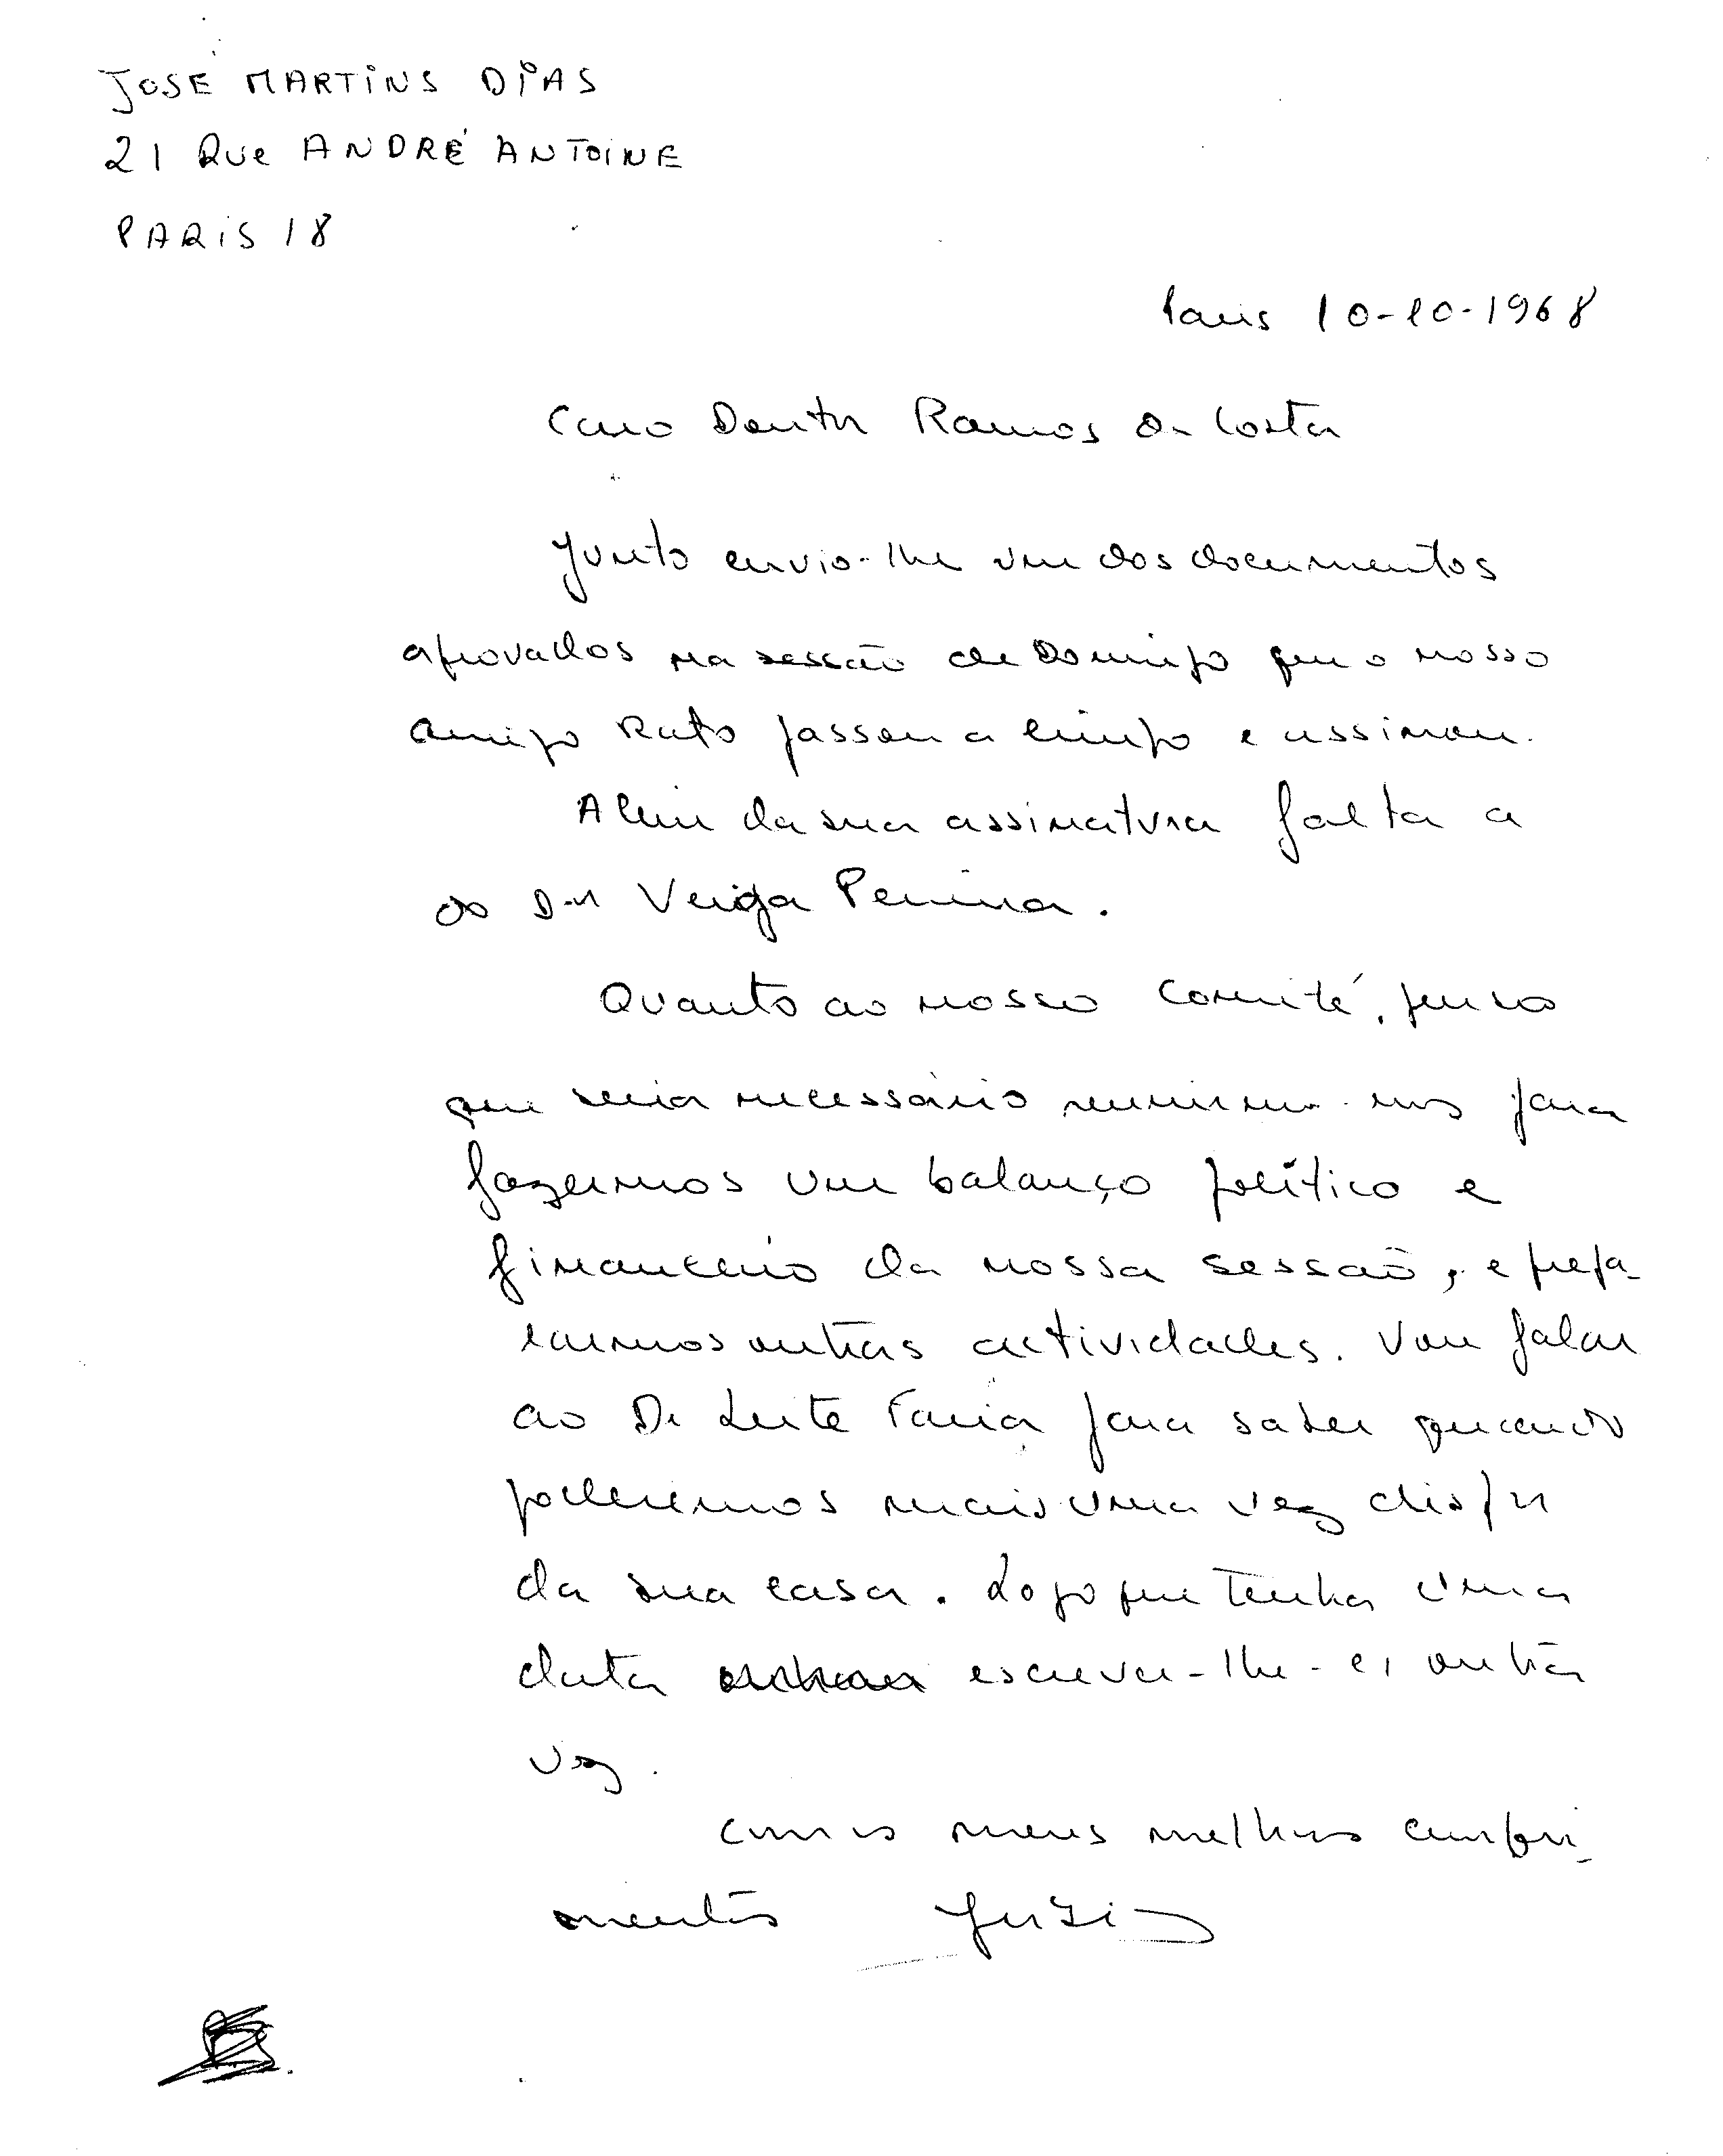 JOSÉ MARTINS DIAS
21 Rue ANDRÉ ANTOINE
PARIS 18
Paris 10-10-1968
Caro Doutor Ramos da Costa
Junto envio-lhe um dos documentos
aprovados na sessão de Domingo que o nosso
amigo Rato passou a limpo e assinou.
Alem da sua assinatura falta a
do Dr Veiga Pereira.
Quanto ao nosso Comité, penso
que seria necessário reunirmo-nos para
fazermos um balanço político e
financeiro da nossa sessão, e prepa-
rarmos outras actividades. Vou falar
ao Dr Leite Faria para saber quando
poderemos mais uma vez dispor
da sua casa. Logo que tenha uma
data escrever-lhe-ei outra
vez.
Com os meus melhores cumpri-
mentos